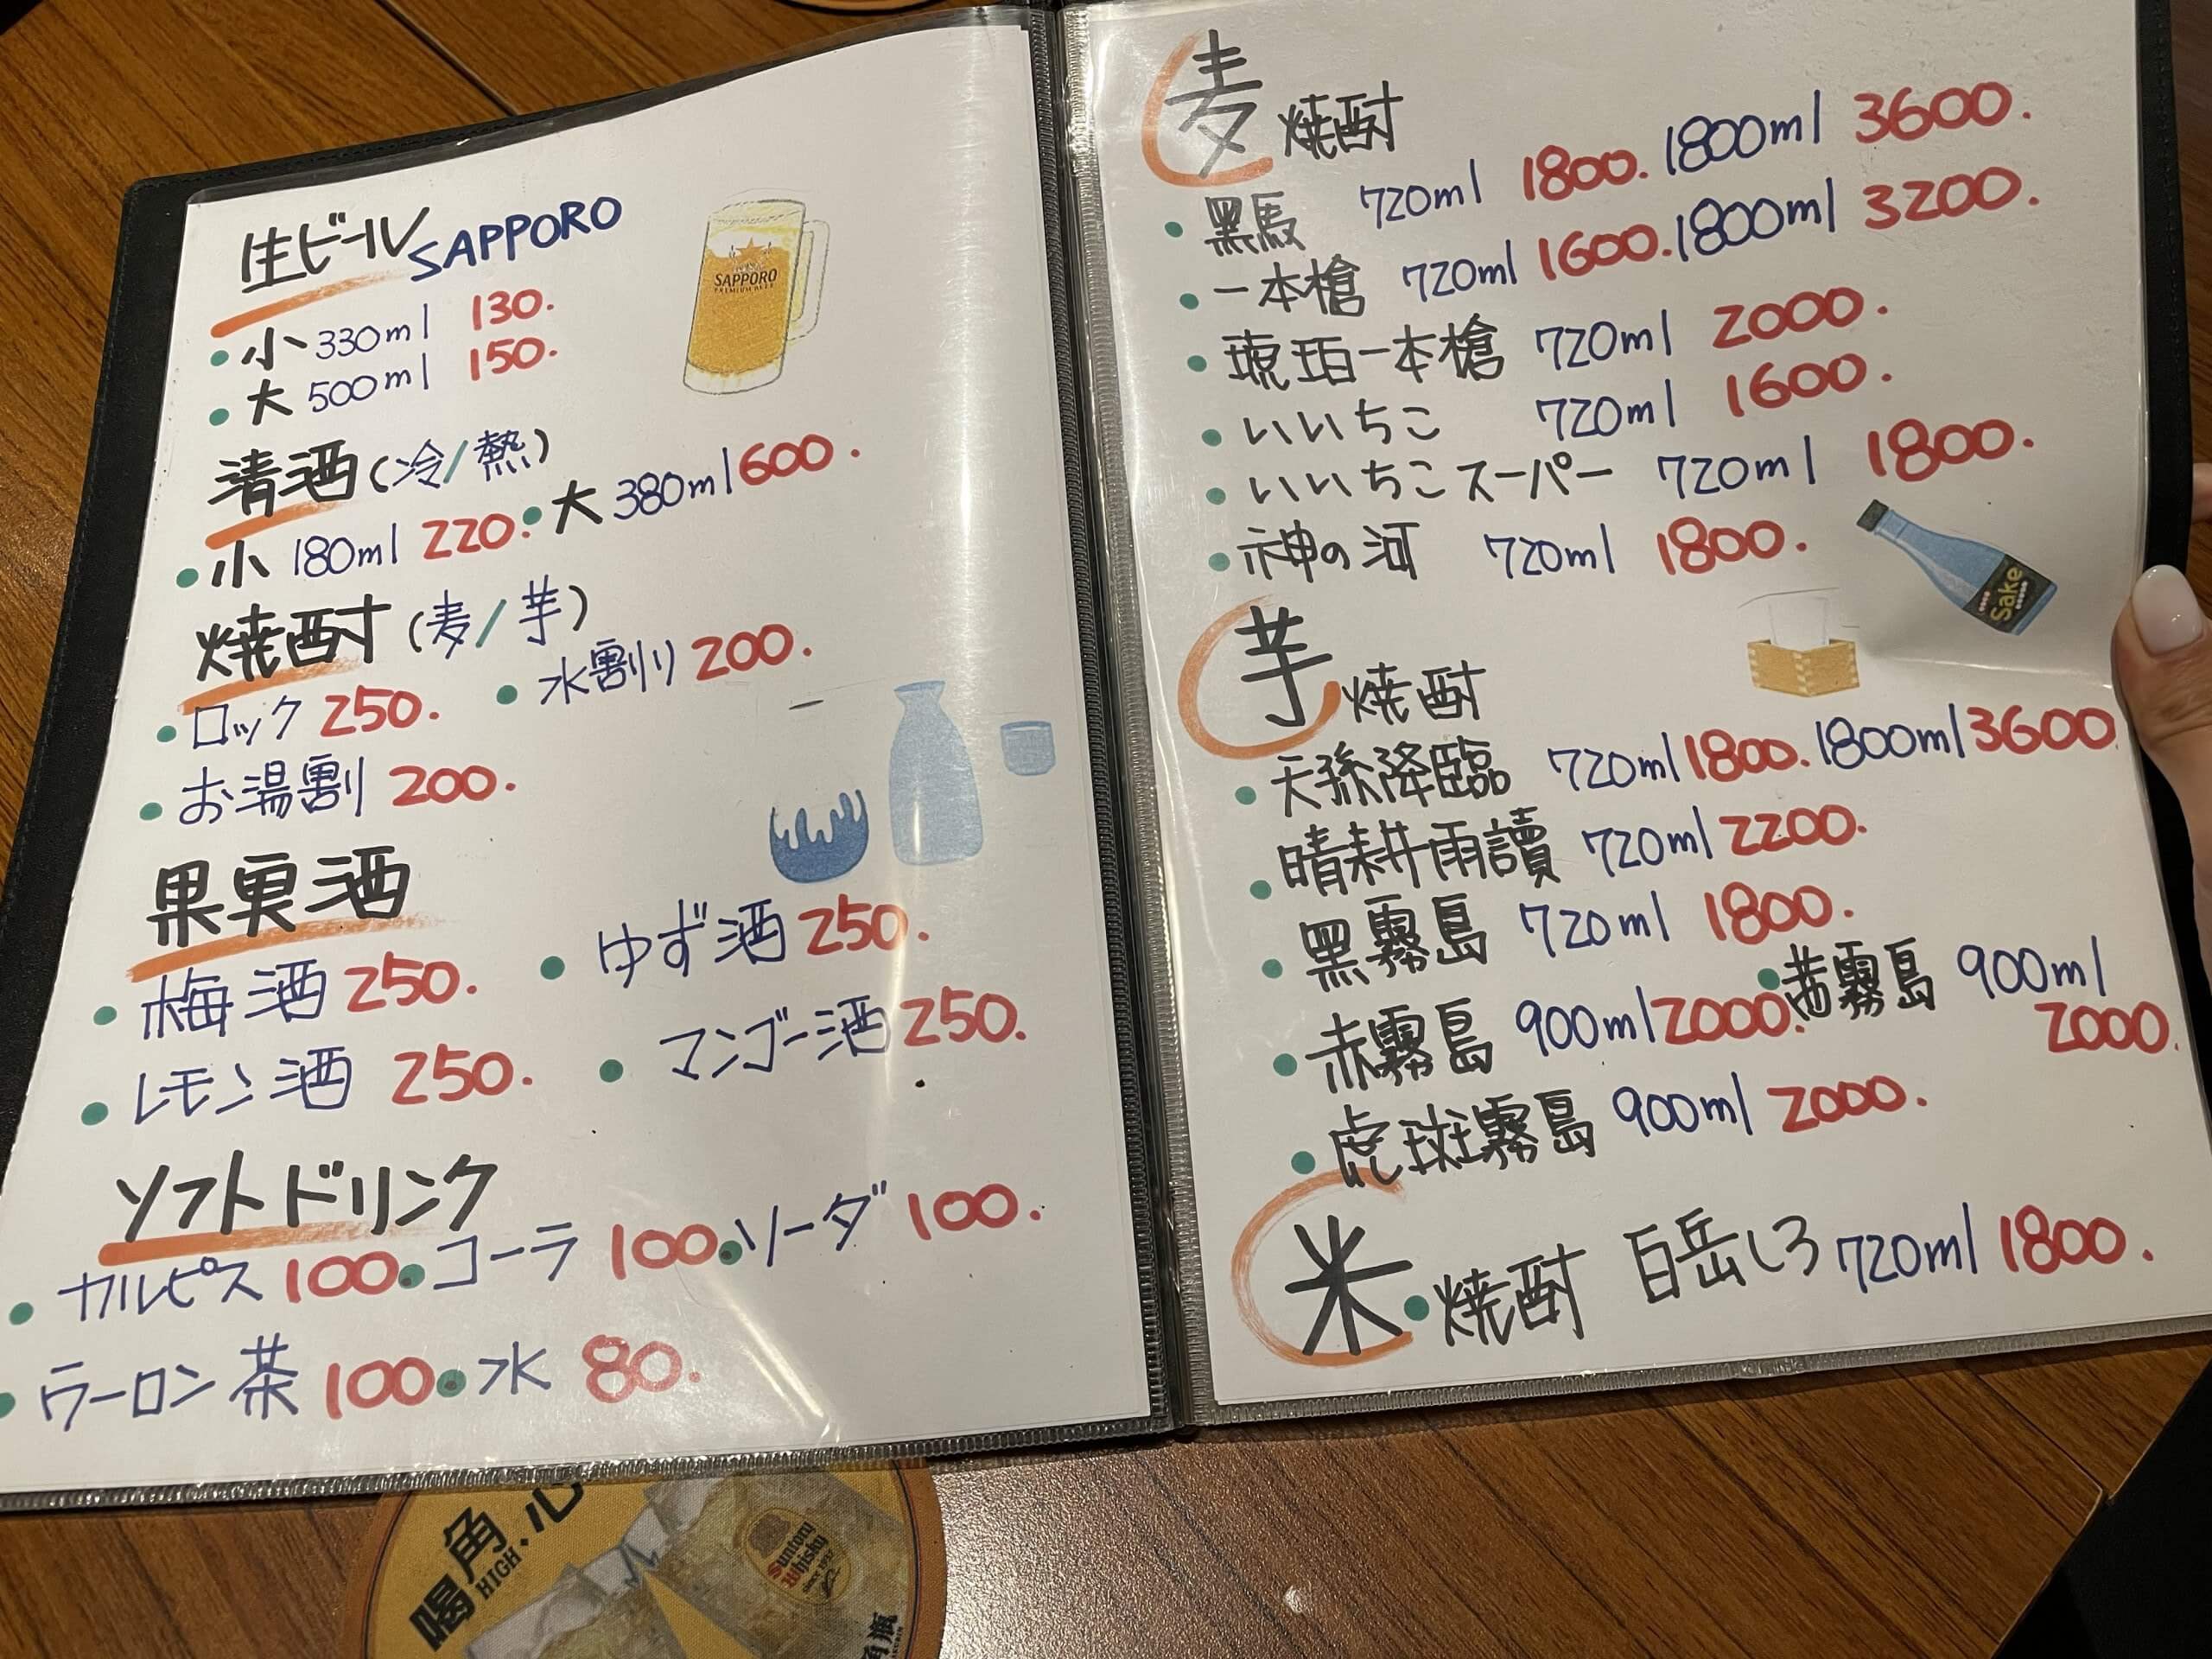 生ビール SAPPORO
SAPPORO
PREMIUM BEER
・小 330ml 130.
・大 500ml 150.
清酒(冷/熱)
・小 180ml 220.・大 380ml 600.
焼酎(麦/芋)
・ロック 250. ・水割り 200.
・お湯割 200.
果実酒
・梅酒 250. ・ゆず酒 250.
・レモン酒 250. ・マンゴー酒 250.
ソフトドリンク
・カルピス 100.・コーラ 100.・ソーダ 100.
・ラーロン茶 100.・水 80.
麦焼酎
・黑馬 720ml 1800. 1800ml 3600.
・一本槍 720ml 1600. 1800ml 3200.
・琥珀一本槍 720ml 2000.
・いいちこ 720ml 1600.
・いいちこスーパー 720ml 1800.
・神の河 720ml 1800.
Sake
芋焼酎
・天孫降臨 720ml 1800. 1800ml 3600
・晴耕雨讀 720ml 2200.
・黑霧島 720ml 1800.
・赤霧島 900ml 2000.・茜霧島 900ml 2000.
・虎斑霧島 900ml 2000.
米・焼酎 白岳しろ 720ml 1800.
喝角
HIGH
Suntory
Whisky
since 1937
角瓶